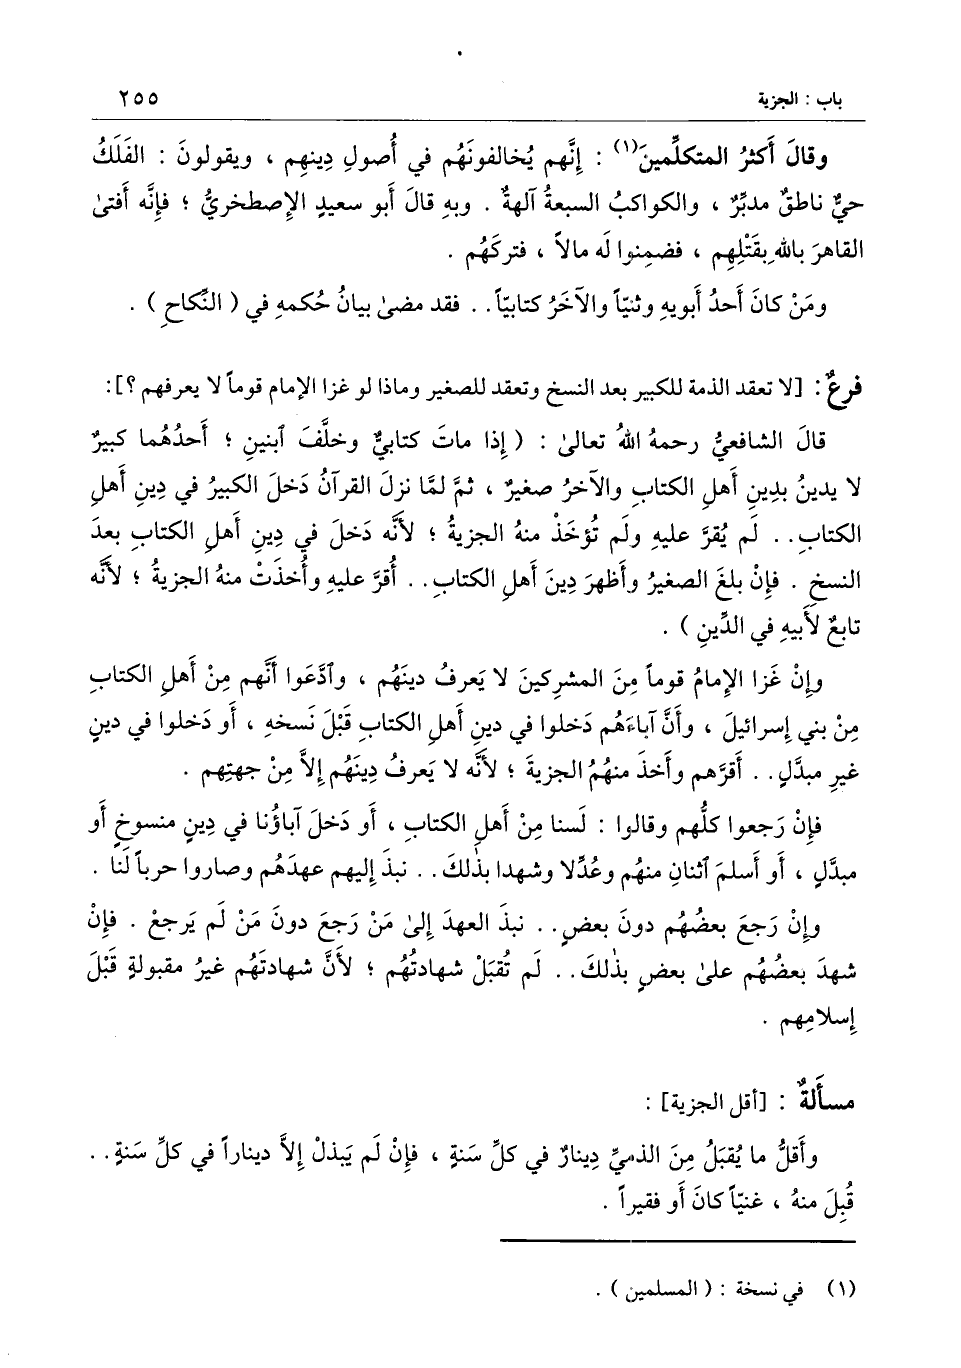 باب : الجزية ٢٥٥
وقالَ أَكثرُ المتكلِّمينَ(١) : إِنَّهم يُخالفونَهُم في أُصولِ دِينهِم ، ويقولونَ : الفَلَكُ
حيٌّ ناطقٌ مدبِّرٌ ، والكواكبُ السبعةُ آلهةٌ . وبهِ قالَ أَبو سعيدٍ الإِصطخريُّ ؛ فإِنَّه أَفتىٰ
القاهرَ باللهِ بقَتْلِهِم ، فضمِنوا لَه مالاً ، فتركَهُم .
ومَنْ كانَ أَحدُ أَبويهِ وثنيّاً والآخَرُ كتابيّاً . . فقد مضىٰ بيانُ حُكمهِ في ( النِّكاحِ ) .
فرعٌ : [لا تعقد الذمة للكبير بعد النسخ وتعقد للصغير وماذا لو غزا الإمام قوماً لا يعرفهم ؟] :
قالَ الشافعيُّ رحمهُ اللهُ تعالىٰ : ( إِذا ماتَ كتابيٌّ وخلَّفَ ٱبنينِ ؛ أَحدُهُما كبيرٌ
لا يدينُ بدِينِ أَهلِ الكتابِ والآخرُ صغيرٌ ، ثمَّ لمَّا نزلَ القرآنُ دَخلَ الكبيرُ في دِينِ أَهلِ
الكتابِ . . لَم يُقرَّ عليهِ ولَم تُؤخَذْ منهُ الجزيةُ ؛ لأَنَّه دَخلَ في دِينِ أَهلِ الكتابِ بعدَ
النسخِ . فإِنْ بلغَ الصغيرُ وأَظهرَ دِينَ أَهلِ الكتابِ . . أُقرَّ عليهِ وأُخذَتْ منهُ الجزيةُ ؛ لأَنَّه
تابعٌ لأَبيهِ في الدِّينِ ) .
وإِنْ غَزا الإِمامُ قوماً مِنَ المشركينَ لا يَعرفُ دينَهُم ، وٱدَّعَوا أَنَّهم مِنْ أَهلِ الكتابِ
مِنْ بني إِسرائيلَ ، وأَنَّ آباءَهُم دَخلوا في دينِ أَهلِ الكتابِ قَبْلَ نَسخهِ ، أَو دَخلوا في دينٍ
غيرِ مبدَّلٍ . . أَقرَّهم وأَخذَ منهُمُ الجزيةَ ؛ لأَنَّه لا يَعرفُ دِينَهُم إِلاَّ مِنْ جهتِهِم .
فإِنْ رَجعوا كلُّهم وقالوا : لَسنا مِنْ أَهلِ الكتابِ ، أَو دَخلَ آباؤُنا في دِينٍ منسوخٍ أَو
مبدَّلٍ ، أَو أَسلمَ ٱثنانِ منهُم وعُدِّلا وشهدا بذٰلكَ . . نبذَ إِليهِم عهدَهُم وصاروا حرباً لَنا .
وإِنْ رَجعَ بعضُهُم دونَ بعضٍ . . نبذَ العهدَ إِلىٰ مَنْ رَجعَ دونَ مَنْ لَم يَرجعْ . فإِنْ
شهدَ بعضُهُم علىٰ بعضٍ بذٰلكَ . . لَم تُقبَلْ شهادتُهُم ؛ لأَنَّ شهادتَهُم غيرُ مقبولةٍ قَبْلَ
إِسلامِهِم .
مسأَلةٌ : [أقل الجزية] :
وأَقلُّ ما يُقبَلُ مِنَ الذميِّ دِينارٌ في كلِّ سَنةٍ ، فإِنْ لَم يَبذلْ إِلاَّ ديناراً في كلِّ سَنةٍ . .
قُبِلَ منهُ ، غنيّاً كانَ أَو فقيراً .
(١) في نسخة : ( المسلمين ) .